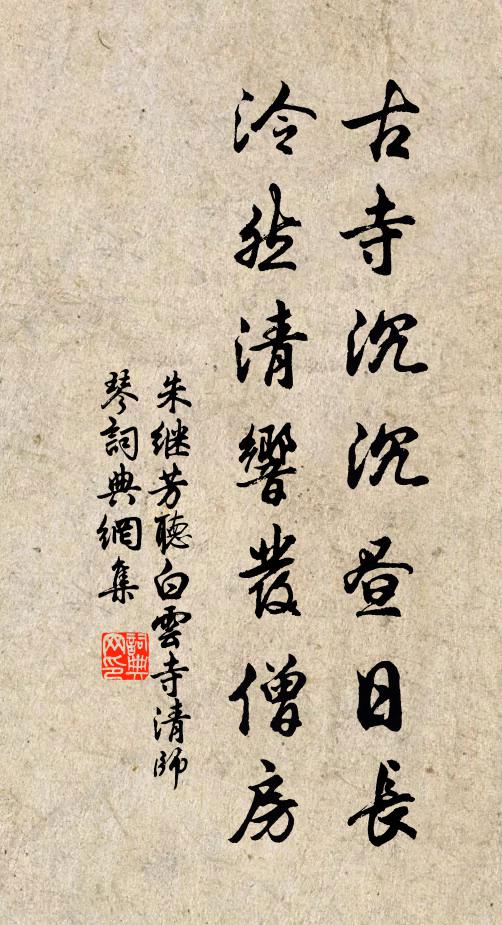 古寺沉沉昼日長
泠然清響發僧房
朱继芳聽白雲寺清師
琴詞典網集
詞典
网印